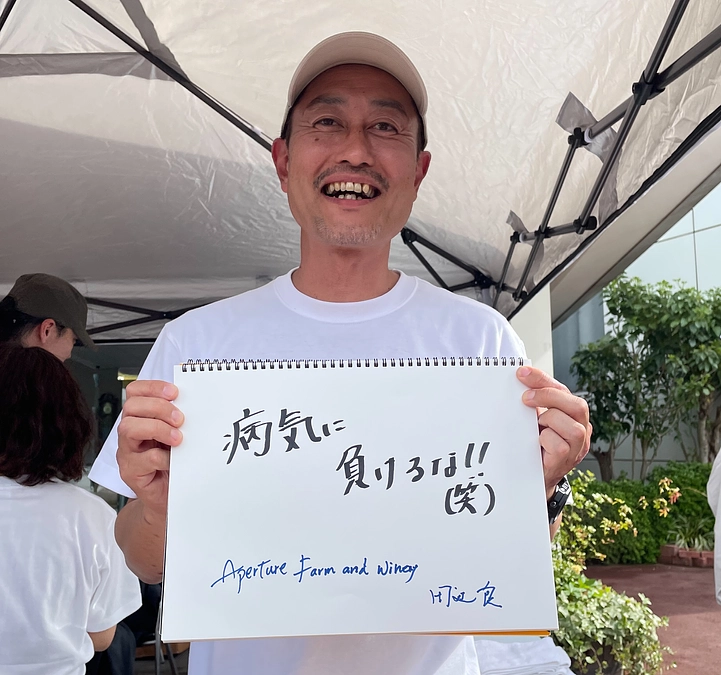 病気に
負けるな!!
(笑)
Aperture Farm and winey
田辺 良